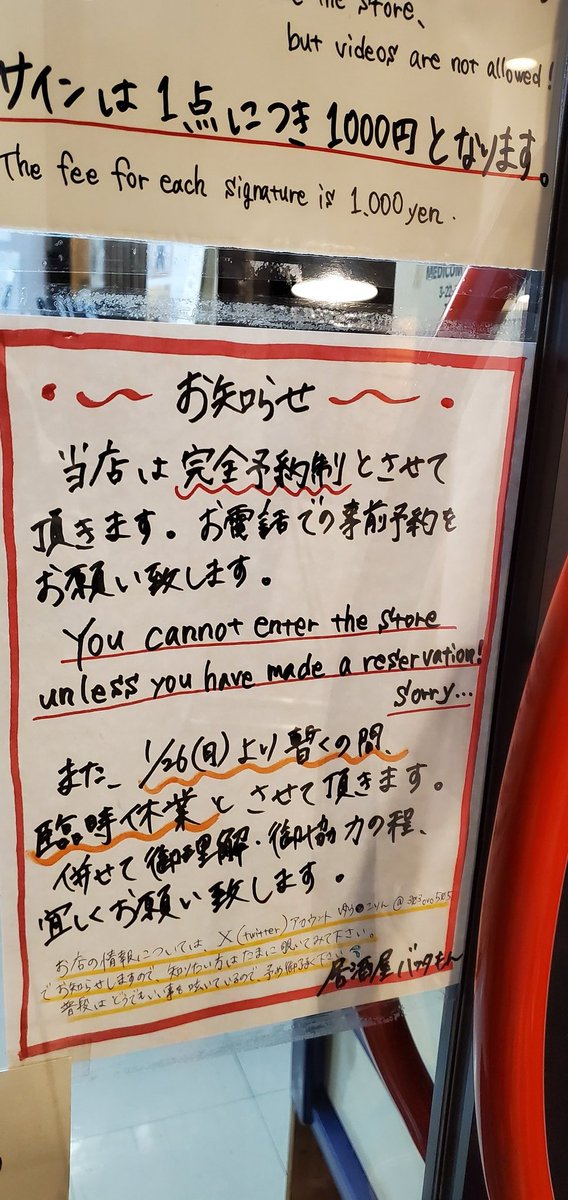 the store、
but videos are not allowed!
サインは1点につき1000円となります。
The fee for each signature is 1.000 yen.
MEDICOM
3-22-
お知らせ
当店は完全予約制とさせて
頂きます。お電話での事前予約を
お願い致します。
You cannot enter the store
unless you have made a reservation!
Sorry...
また、1/26(日)より暫くの間、
臨時休業とさせて頂きます。
併せて御理解・御協力の程、
宜しくお願い致します。
お店の情報については、X(twitter)アカウント
でお知らせしますので、知りたい方はたまに覗いてみて下さい。
普段はどうでもいい事を呟いているので、予め御了承下さい。
居酒屋バッタもん